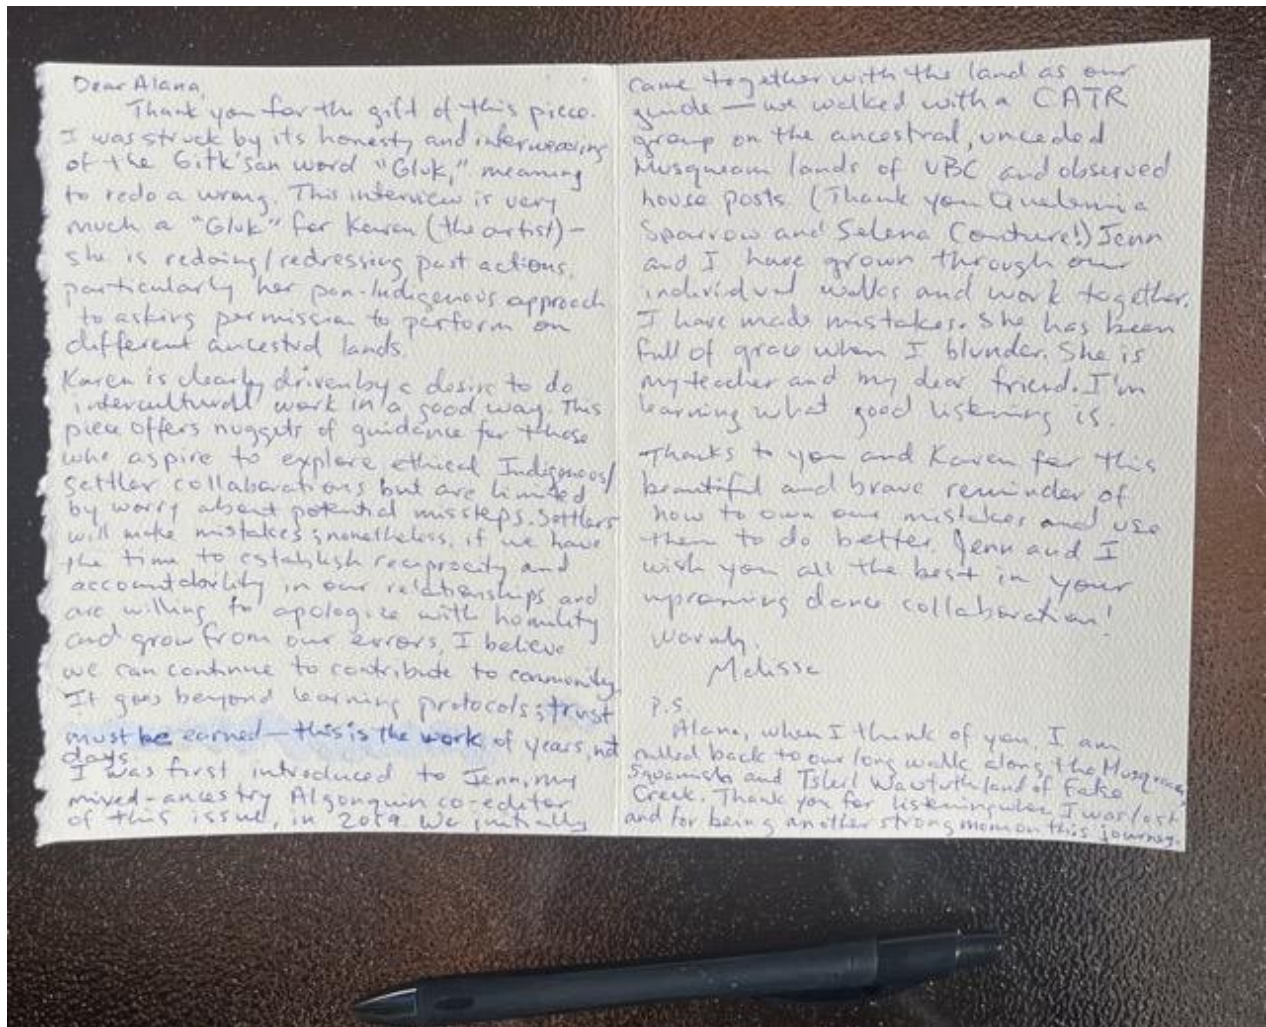 Dear Alana,
Thank you for the gift of this piece.
I was struck by its honesty and interweaving
of the Gitk'san word "Gluk," meaning
to redo a wrong. This interview is very
much a "Gluk" for Karen (the artist) –
she is redoing/redressing past actions,
particularly her pan-Indigenous approach
to asking permission to perform on
different ancestral lands.
Karen is clearly driven by a desire to do
intercultural work in a good way. This
piece offers nuggets of guidance for those
who aspire to explore ethical Indigenous/
Settler collaborations but are limited
by worry about potential missteps. Settlers
will make mistakes; nonetheless, if we have
the time to establish reciprocity and
accountability in our relationships and
are willing to apologize with humility
and grow from our errors, I believe
we can continue to contribute to community.
It goes beyond learning protocols; trust
must be earned – this is the work of years, not
days.
I was first introduced to Jenn, my
mixed-ancestry Algonquin co-editor
of this issue, in 2019. We initially
came together with the land as our
guide – we walked with a CATR
group on the ancestral, unceded
Musqueam lands of UBC and observed
house posts. (Thank you Quelemia
Sparrow and Selena Couture!) Jenn
and I have grown through our
individual walks and work together.
I have made mistakes. She has been
full of grace when I blunder. She is
my teacher and my dear friend. I'm
learning what good listening is.
Thanks to you and Karen for this
beautiful and brave reminder of
how to own our mistakes and use
them to do better. Jenn and I
wish you all the best in your
upcoming dance collaboration!
Warmly,
Melissa
P.S.
Alana, when I think of you, I am
pulled back to our long walk along the Musqueam,
Squamish and Tsleil Waututh land of False
Creek. Thank you for listening when I was lost
and for being another strong mom on this journey.